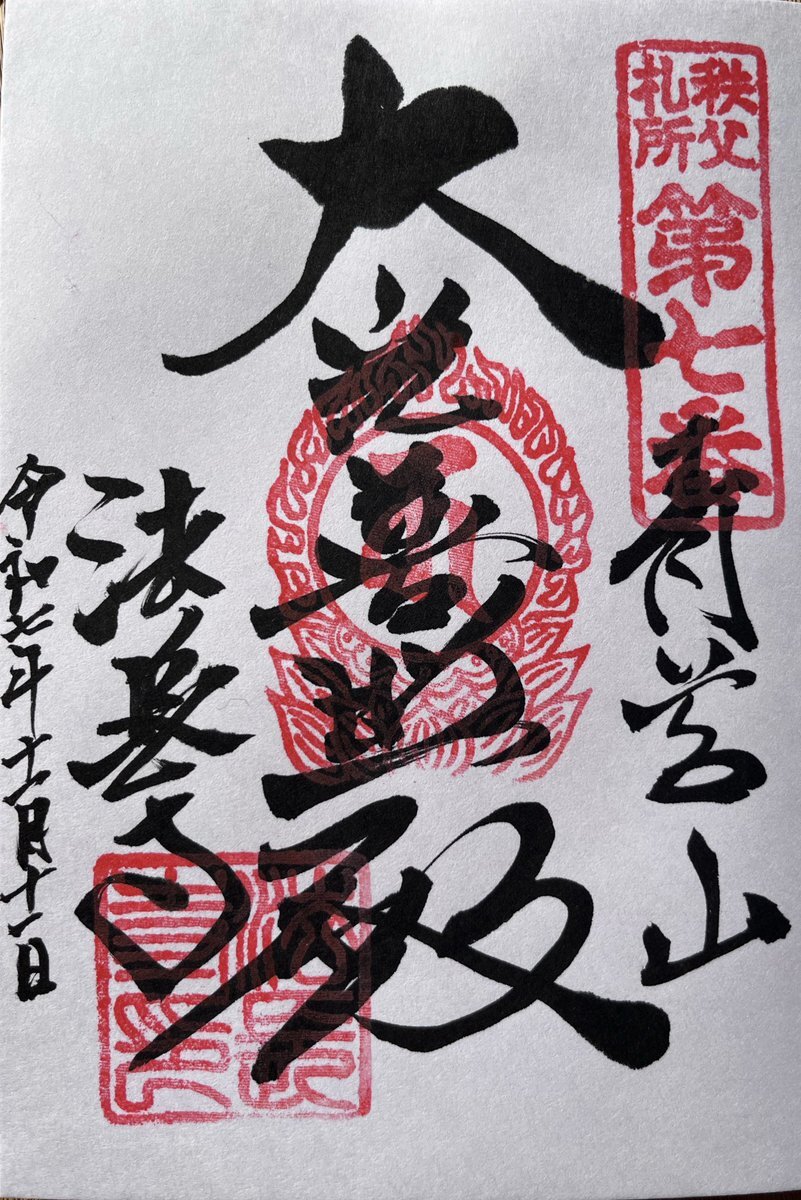 秩父
札所
第七番
青苔山
大光普照殿
法長寺
令和七年十二月十一日